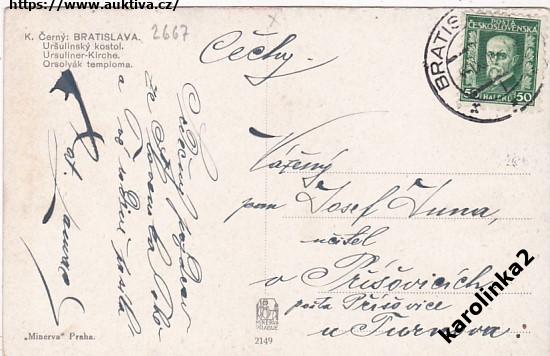 https://www.auktiva.cz/
K. Černý: BRATISLAVA.
Uršulinský kostol.
Ursuliner-Kirche.
Orsolyák temploma.
2667
Čechy.
POŠTA
ČESKOSLOVENSKÁ
50 HALÉŘŮ 50
BRATIS
Srdečný pozdrav
ze Slovenska
a
Vážený
pan Josef Tuma,
učitel
v Příšovicích
pošta Příšovice
u Turnova
MINERVA
PRAGUE
2149
„Minerva" Praha.
karolinka2